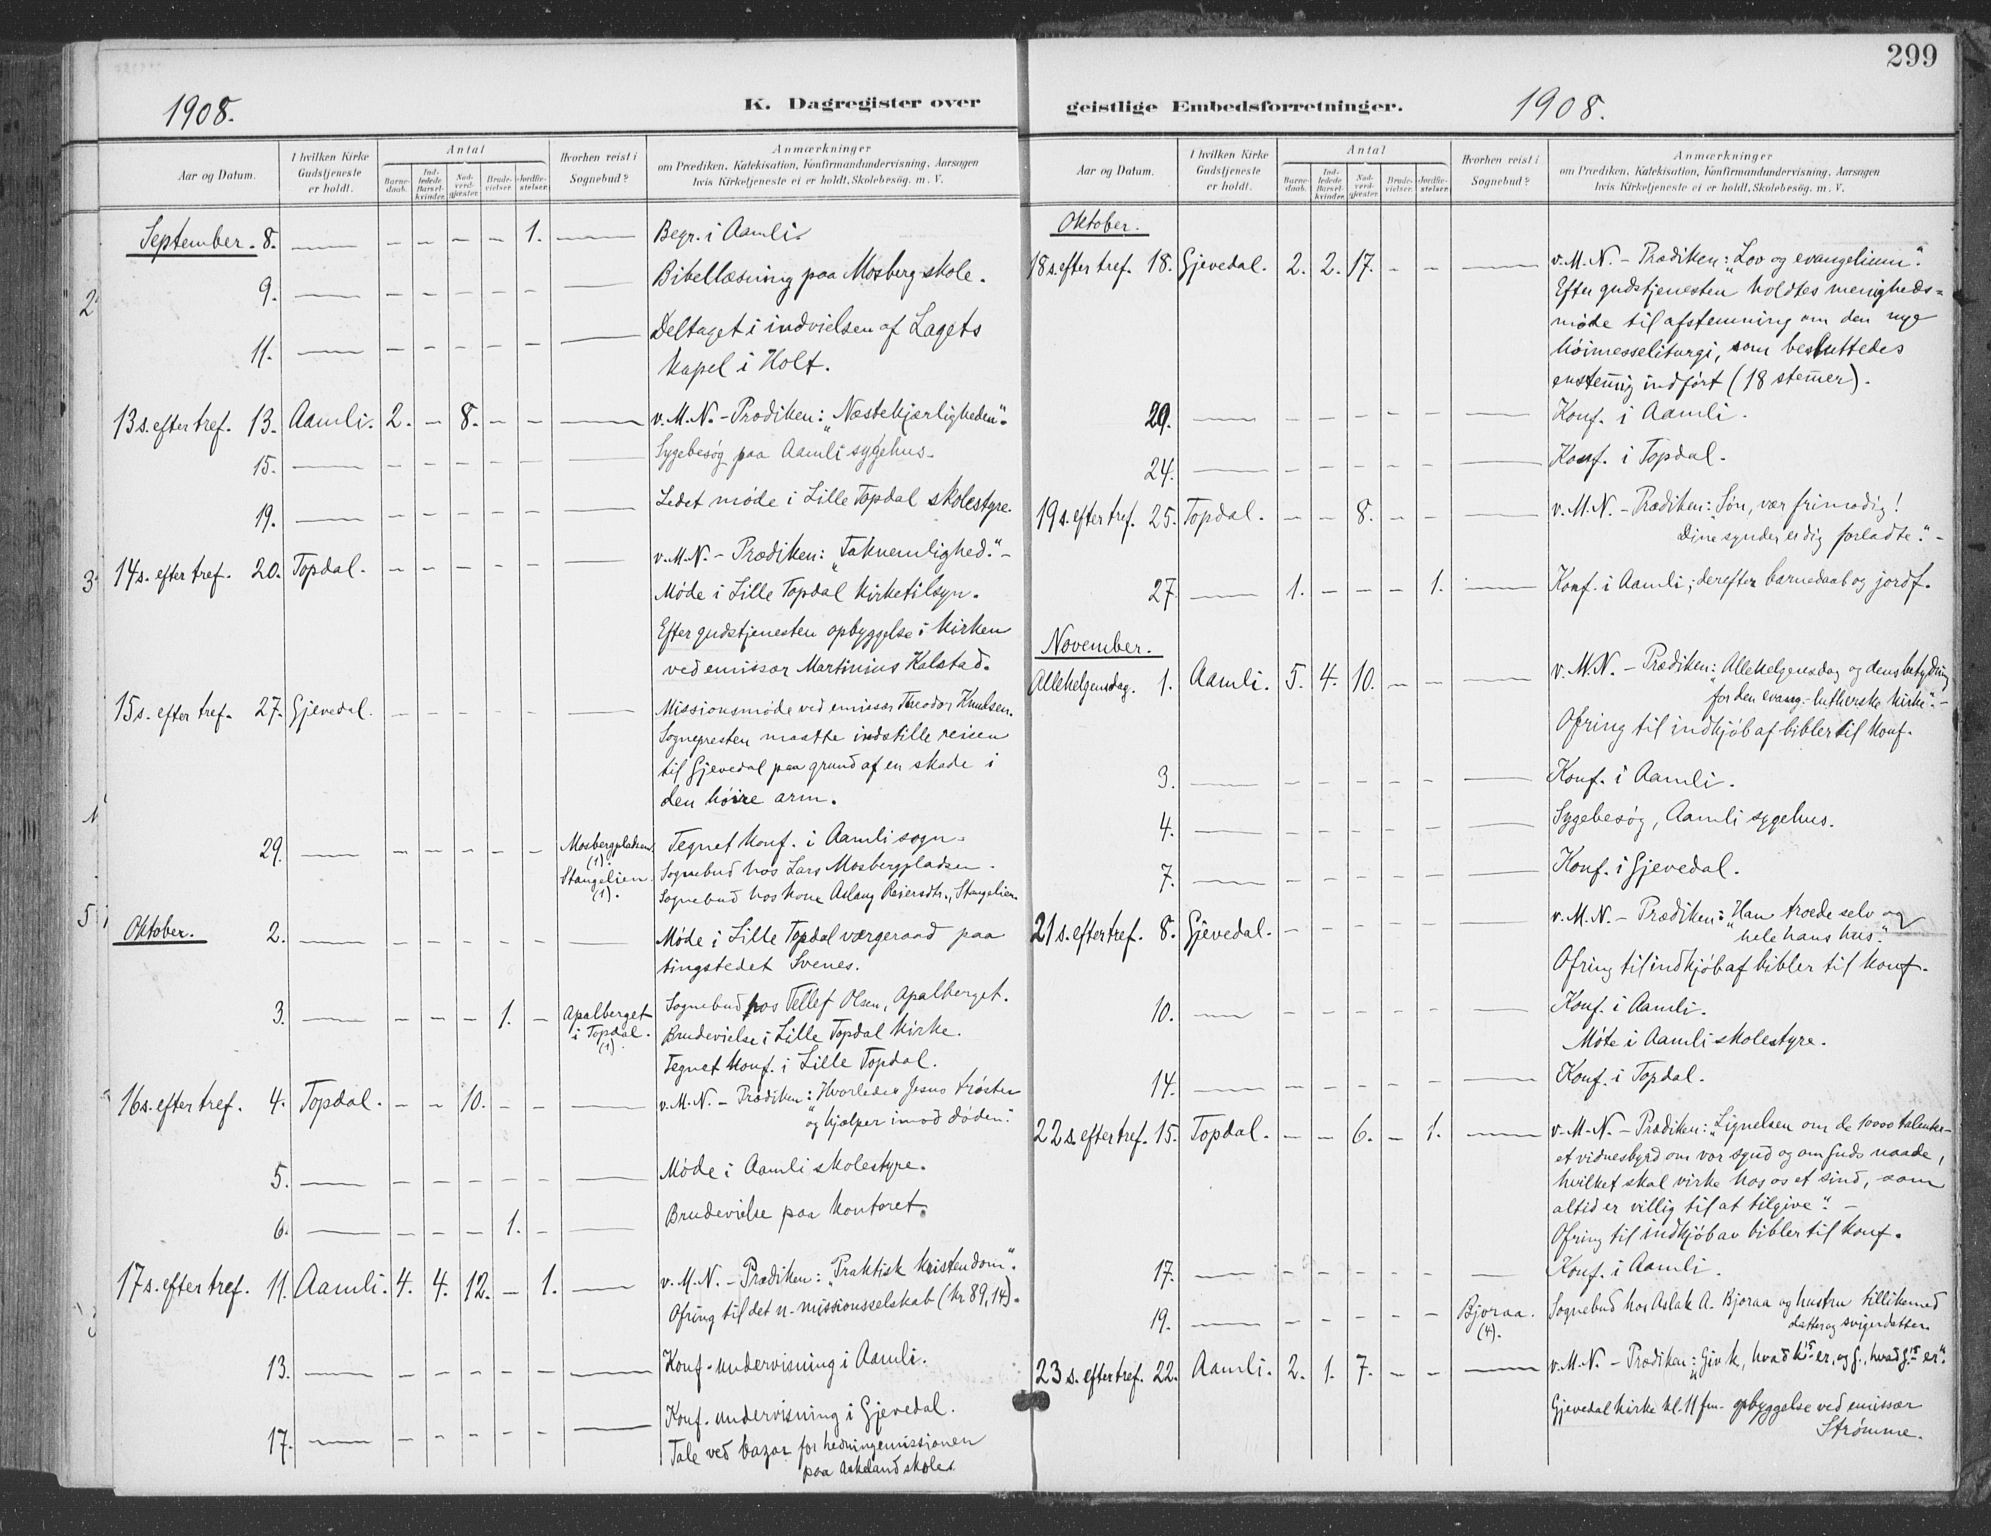 299
1908.
K. Dagregister over
Aar og Datum.
I hvilken Kirke Gudstjeneste er holdt.
Antal
Barne-daab.
Ind-ledede Barsel-kvinder.
Nad-verd-gjester.
Brude-vielser.
Jordfæ-stelser.
Hvorhen reist i Sognebud?
Anmærkninger
om Prædiken, Katekisation, Konfirmandundervisning, Aarsagen
hvis Kirketjeneste ei er holdt, Skolebesøg. m. V.
September. 8. — — — — — 1. — Begr. i Aamli.
9. — — — — — — — Bibellæsning paa Mosberg skole.
11. — — — — — — — Deltaget i indvielsen af Lagets
kapel i Holt.
13 s. efter tref. 13. Aamli. 2. — 8. — — — v. M. N. – Prædiken: „Næstekjærligheden“.
15. — — — — — — — Sygebesøg paa Aamli sygehus.
19. — — — — — — — Ledet møde i Lille Topdal skolestyre.
14 s. efter tref. 20. Topdal. — — — — — — v. M. N. – Prædiken: „Taknemlighed.“ –
Møde i Lille Topdal kirketilsyn.
Efter gudstjenesten opbyggelse i kirken
ved emissær Martinius Kalstad.
15 s. efter tref. 27. Gjevedal. — — — — — — Missionsmøde ved emissær Theodor Knudsen.
Sognepresten maatte indstille reisen
til Gjevedal paa grund af en skade i
den høire arm.
29. — — — — — — Mosbergpladsen (1). Tegnet konf. i Aamli sogn.
Stangelien. (1). Sognebud hos Lars Mosbergpladsen.
Sognebud hos kone Aslaug Reiersdtr., Stangelien.
Oktober. 2. — — — — — — — Møde i Lille Topdal værgeraad paa
tingstedet Svenes.
3. — — — — 1. — Apalberget i Topdal. (1) Sognebud hos Tellef Olsen, Apalberget.
Brudevielse i Lille Topdal kirke.
Tegnet konf. i Lille Topdal.
16 s. efter tref. 4. Topdal. — — 10. — — — v. M. N. – Prædiken: „Hvorledes Jesus trøster
og hjælper imod døden“.
5. — — — — — — — Møde i Aamli skolestyre.
6. — — — — 1. — — Brudevielse paa kontoret.
17 s. efter tref. 11. Aamli. 4. 4. 12. — 1. — v. M. N. – Prædiken: „Praktisk kristendom“.
Ofring til det n. missionsselskab (kr 89,14).
13. — — — — — — — Konf. undervisning i Aamli.
17. — — — — — — — Konf. undervisning i Gjevedal.
Tale ved bazar for hedningemissionen
paa Askeland skole.
geistlige Embedsforretninger.
1908.
Aar og Datum.
I hvilken Kirke Gudstjeneste er holdt.
Antal
Barne-daab.
Ind-ledede Barsel-kvinder.
Nad-verd-gjester.
Brude-vielser.
Jordfæ-stelser.
Hvorhen reist i Sognebud?
Anmærkninger
om Prædiken, Katekisation, Konfirmandundervisning, Aarsagen
hvis Kirketjeneste ei er holdt, Skolebesøg. m. V.
Oktober.
18 s. efter tref. 18. Gjevedal. 2. 2. 17. — — — v. M. N. – Prædiken: „Lov og evangelium“.
Efter gudstjenesten holdtes menigheds=
møde til afstemning om den nye
høimesseliturgi, som besluttedes
enstemig indført (18 stemer).
20. — — — — — — — Konf. i Aamli.
24. — — — — — — — Konf. i Topdal.
19 s. efter tref. 25. Topdal. — — 8. — — — v. M. N. – Prædiken: „Søn, vær frimodig!
Dine synder er dig forladte.“ –
27. — 1. — — — 1. — Konf. i Aamli; derefter barnedaab og jordf.
November.
Allehelgensdag. 1. Aamli. 5. 4. 10. — — — v. M. N. – Prædiken: „Allehelgensdag og dens betydning
for den evang.-lutherske kirke“. –
Ofring til indkjøb af bibler til konf.
3. — — — — — — — Konf. i Aamli.
4. — — — — — — — Sygebesøg, Aamli sygehus.
7. — — — — — — — Konf. i Gjevedal.
21 s. efter tref. 8. Gjevedal. — — — — — — v. M. N. – Prædiken: „Han troede selv og
hele hans hus“.
Ofring til indkjøb af bibler til konf.
10. — — — — — — — Konf. i Aamli.
Møte i Aamli skolestyre.
14. — — — — — — — Konf. i Topdal.
22 s. efter tref. 15. Topdal. — — 6. — 1. — v. M. N. – Prædiken: „Lignelsen om de 10000 talenter –
et vidnesbyrd om vor synd og om Guds naade,
hvilket skal virke hos os et sind, som
altid er villig til at tilgive“. –
Ofring til indkjøb av bibler til konf.
17. — — — — — — — Konf. i Aamli.
19. — — — — — — Bjoraa. (4). Sognebud hos Aslak A. Bjoraa og hustru tillikemed
datter og svigerdatter.
23 s. efter tref. 22. Aamli. 2. 1. 7. — — — v. M. N. – Prædiken: „Giv k, hvad k's er, og G., hvad G's er“.
Gjevedal kirke kl. 11 fm. opbyggelse ved emissær
Strømme.